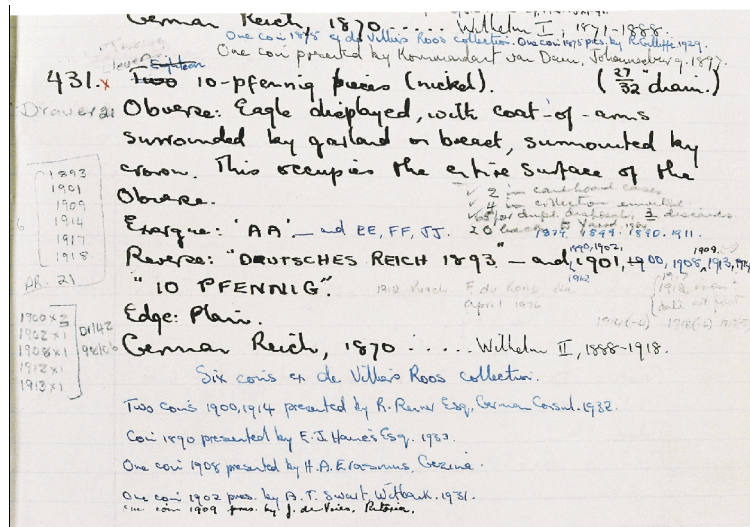 German Reich, 1870 ..... Wilhelm I, 1871-1888.
One coin 1878 ex de Villiers Roos collection. One coin 1875 pres. by R. Cunliffe 1929.
One coin presented by Kommandant van Dam, Johannesburg. 1897.
Eighteen
431. x Two 10-pfennig pieces (nickel). (27/32" diam.)
Drawer 21
Obverse: Eagle displayed, with coat-of-arms
surrounded by garland on breast, surmounted by
crown. This occupies the entire surface of the
Obverse.
1893
1901
1909
1914
1917
1918
DR. 21
✓ 2 in cardboard cases
✓ 4 in collection
Exergue: 'AA' — and EE, FF, JJ. 1874 1899. 1890. 1911.
1890, 1902, 1909.
Reverse: "DEUTSCHES REICH 1893" — and 1901, 1900, 1908, 1913, 1914
1912
"10 PFENNIG".
April 1976
Edge: Plain.
1900 x 2
1902 x 1
1908 x 1
1912 x 1
1913 x 1
German Reich, 1870 ..... Wilhelm II, 1888-1918.
Six coins ex de Villiers Roos collection.
Two coins 1900, 1914 presented by R. Renner Esq, German Consul. 1932.
Coin 1890 presented by E.J. Haines Esq. 1933.
One coin 1908 presented by H.A. Erasmus, Gezina.
One coin 1902 pres. by A.T. Swart, Witbank. 1951.
One coin 1909 pres. by J. de Vries, Pretoria.